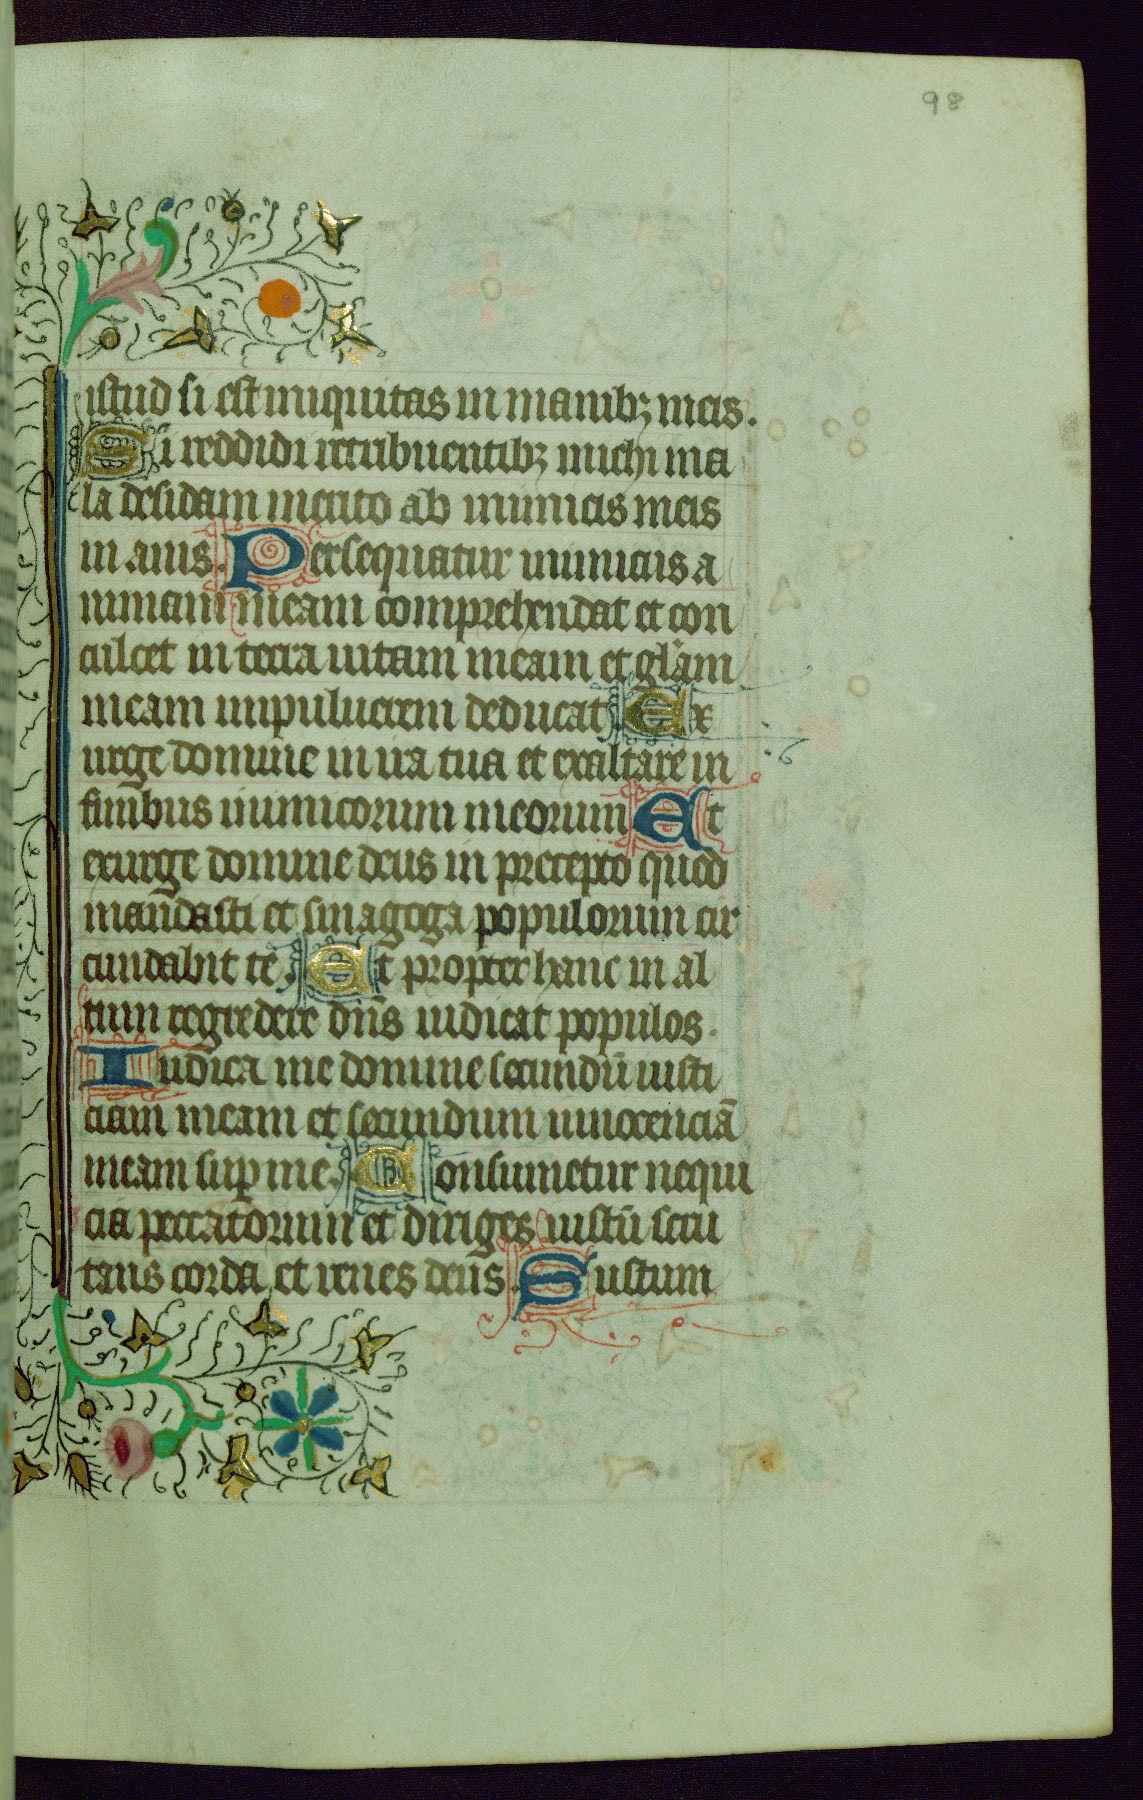 98
istud si est iniquitas in manibꝫ meis.
Si reddidi retribuentibꝫ michi ma
la decidam merito ab inimicis meis
inanis. Persequatur inimicus a
nimam meam comprehendat et con
culcet in terra uitam meam et gl̅am
meam in puluerem deducat. Ex
urge domine in ira tua et exaltare in
finibus inimicorum meorum Et
exurge domine deus in precepto quod
mandasti et sinagoga populorum cir
cundabit te. Et propter hanc in al
tum regredere dn̅s iudicat populos.
Iudica me domine secundu̅ iusti
ciam meam et secundum innocencia̅
meam suꝑ me. Consumetur nequi
cia peccatorum et diriges iustu̅ scru
tans corda et renes deus. Iustum